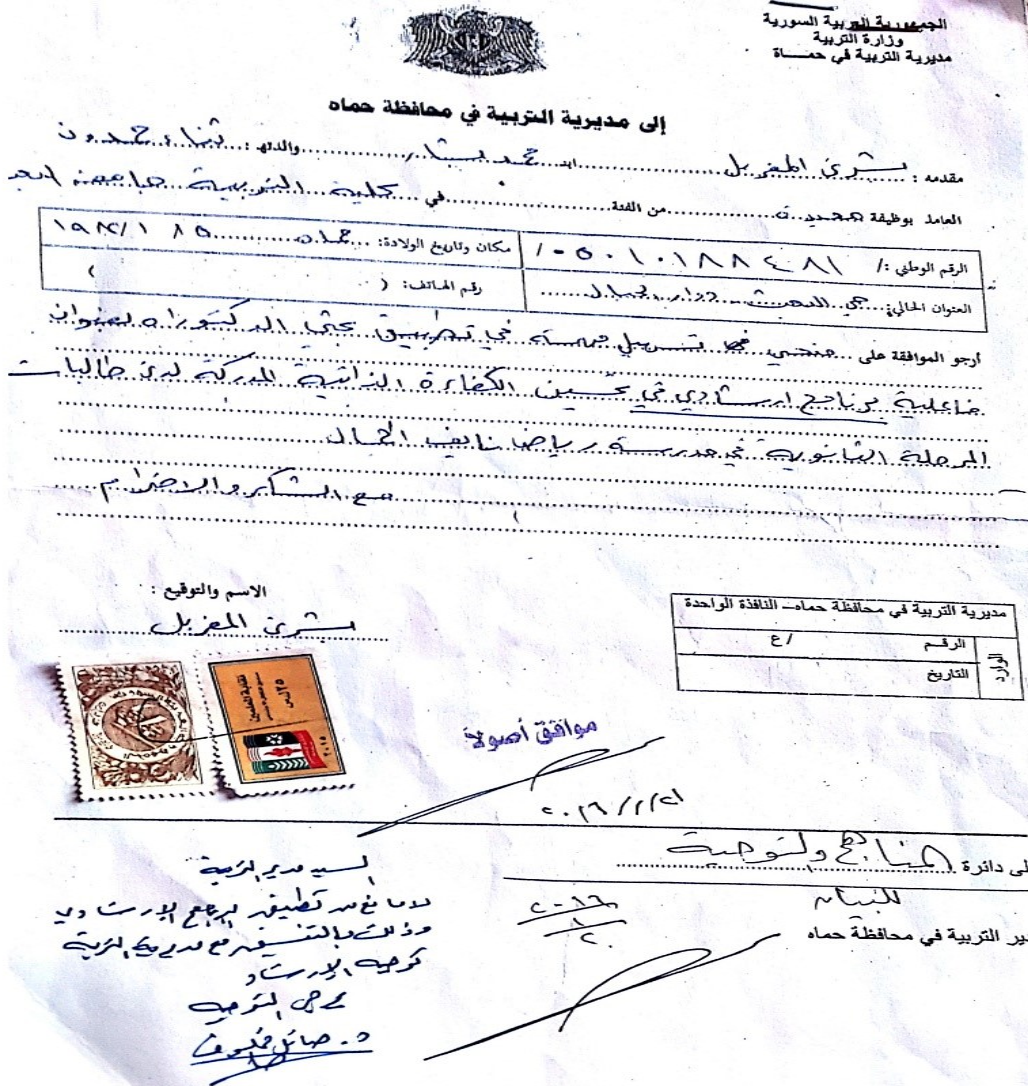 الجمهورية العربية السورية
وزارة التربية
مديرية التربية في حمــاة
إلى مديرية التربية في محافظة حماه
مقدمه : بشرى المغربل ابنة محمد بشار والدتها : ثناء حمدون
العامل بوظيفة مدرسة من الفئة في كلية التربية جامعة
الرقم الوطني : مكان وتاريخ الولادة: حماه
العنوان الحالي: حي البعث رقم الهاتف: ( )
أرجو الموافقة على منحي تسهيل مهمة في تطبيق بحثي الدكتوراه بعنوان
فاعلية برنامج ارشادي في تحسين الكفاءة الذاتية المدركة لدى طالبات
المرحلة الثانوية في مدرسة رياض نايف الجمال
مع الشكر والاحترام
الاسم والتوقيع :
بشرى المغربل
مديرية التربية في محافظة حماه– النافذة الواحدة
الوارد
الرقم / ع
التاريخ
نقابة المعلمين
٢٥ ل.س
موافق أصولا
إلى دائرة المناهج والتوجيه
للبيان
مدير التربية في محافظة حماه
السيد مدير التربية
لا مانع من تطبيق البرنامج الإرشادي
وذلك بالتنسيق مع مديرية التربية
توجيه الإرشاد